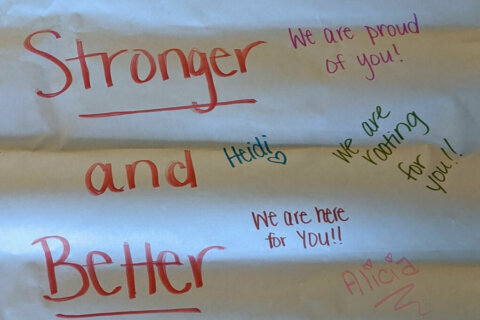 Stronger
We are proud
of you!
and
Heidi
We are
rooting
for
you!!
Better
We are here
for YOU!!
Alicia